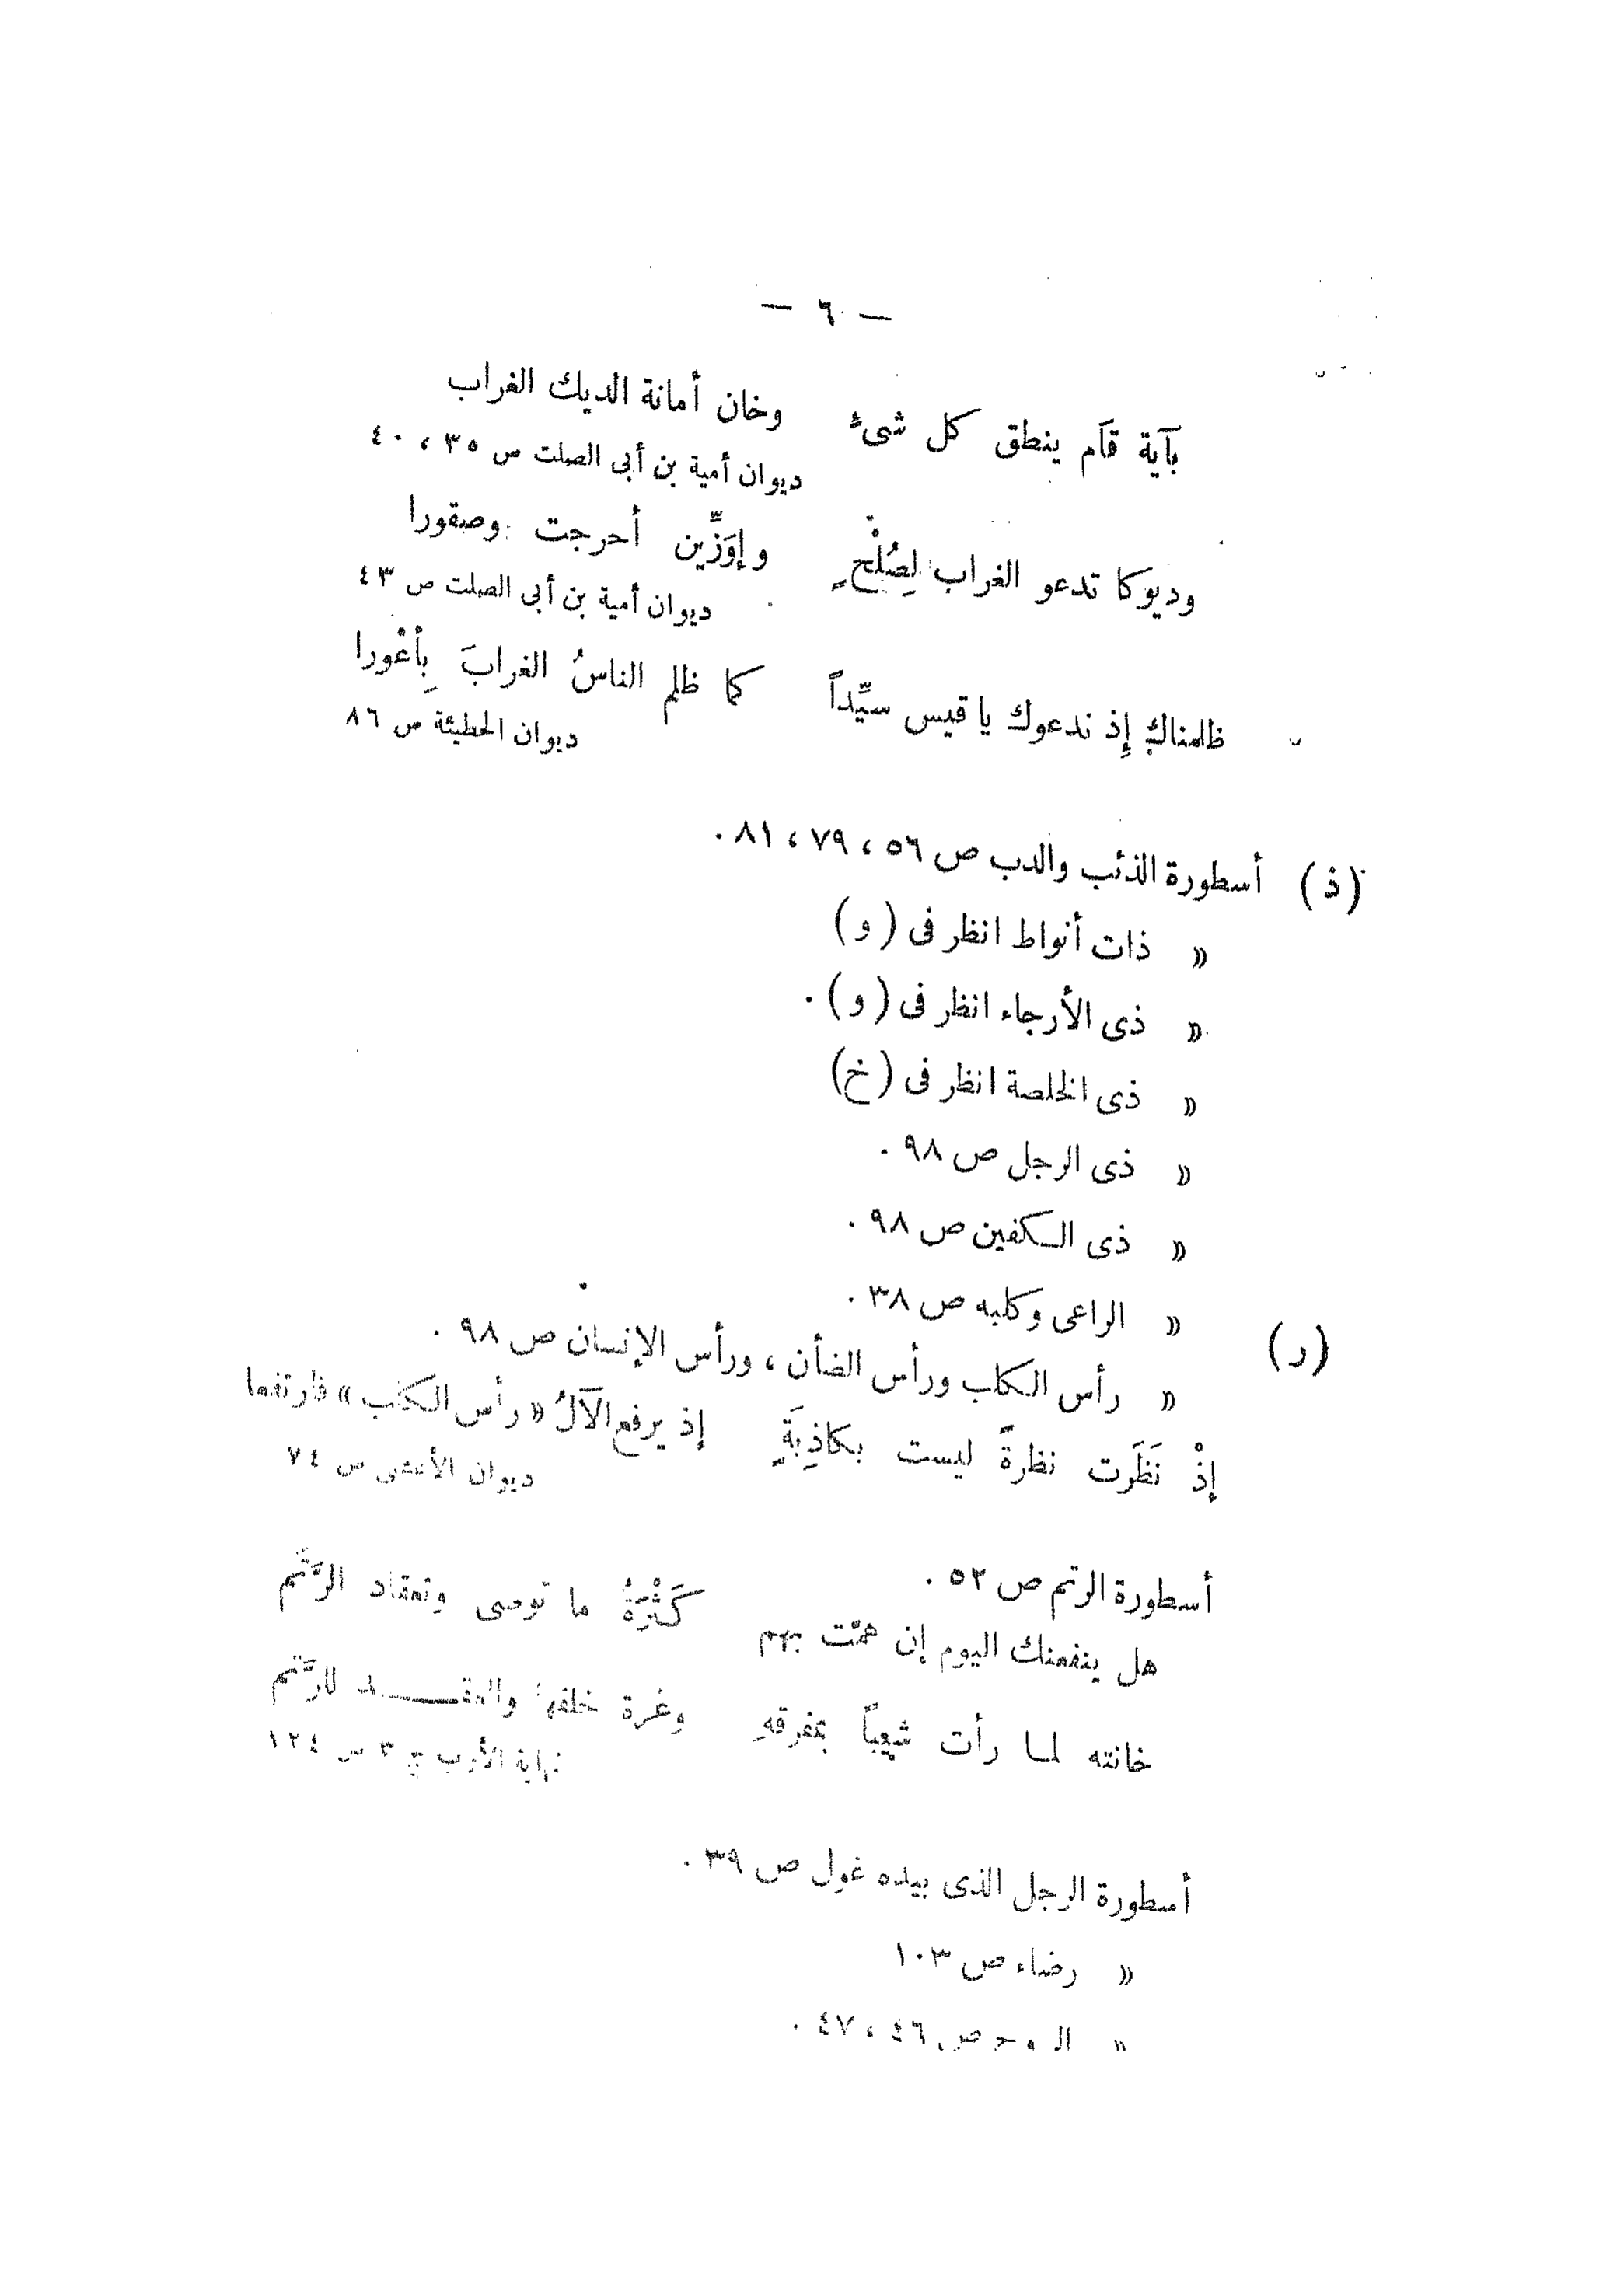 — ٦ —
بآية قَام ينطق كل شىءٌ وخان أمانة الديك الغراب
ديوان أمية بن أبى الصلت ص ٣٥ ، ٤٠
وديوكا تدعو الغراب لِصُلْحٍ وإوَزِّين أحرجت وصقورا
ديوان أمية بن أبى الصلت ص ٤٣
ظلمناك إِذ ندعوك يا قيس سيِّداً كما ظلم الناسُ الغرابَ بِأعْورا
ديوان الحطيئة ص ٨٦
(ذ) أسطورة الذئب والدب ص ٥٦ ، ٧٩ ، ٨١ .
« ذات أنواط انظر فى ( و )
« ذى الأرجاء انظر فى ( و ) .
« ذى الخلصة انظر فى ( خ )
« ذى الرجل ص ٩٨ .
« ذى الكفين ص ٩٨ .
(ر) « الراعى وكلبه ص ٣٨ .
« رأس الكلب ورأس الضأن ، ورأس الإنسان ص ٩٨ .
إذْ نَظَرت نظرةً ليست بكاذِبَةٍ إذ يرفع الآلُ « رأس الكلب » فارتفعا
ديوان الأعشى ص ٧٤
أسطورة الرتم ص ٥٢ .
هل ينفعنك اليوم إن همّت بهم كَثْرَةُ ما توصى وتعقاد الرَّتَم
خانته لما رأت شيباً بمفرقهِ وغرة خلفها والعقـــد للرَّتم
نهاية الأرب ج ٣ ص ١٢٤
أسطورة الرجل الذى بيده غول ص ٣٩ .
« رضاء ص ١٠٣
« الروح ص ٤٦ ، ٤٧ .